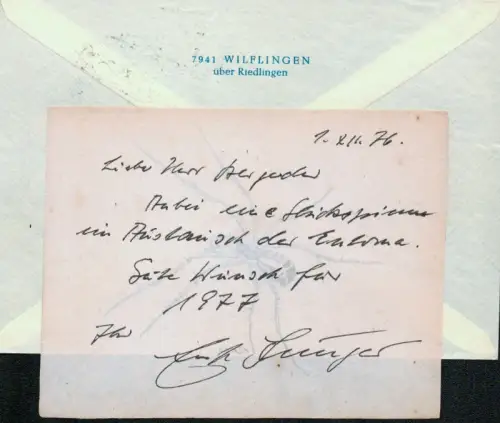 7941 WILFLINGEN
über Riedlingen
1. XII. 76.
Lieber Herr
Anbei eine Glücksspinne
im Austausch der Entoma.
Gute Wünsche für
1977
Ihr
Ernst Jünger